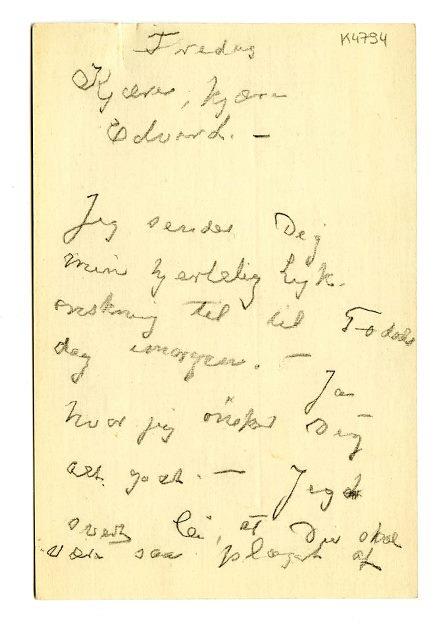 K4794
Fredag
Kjære, kjære
Edvard. —
Jeg sender Dig
min hjertelig Lyk-
ønskning til til Fødsels
dag imorgen. —
Ja
hvor jeg önsker Dig
alt godt. — Jeg
svært lei, at Du skal
være saa plaget af